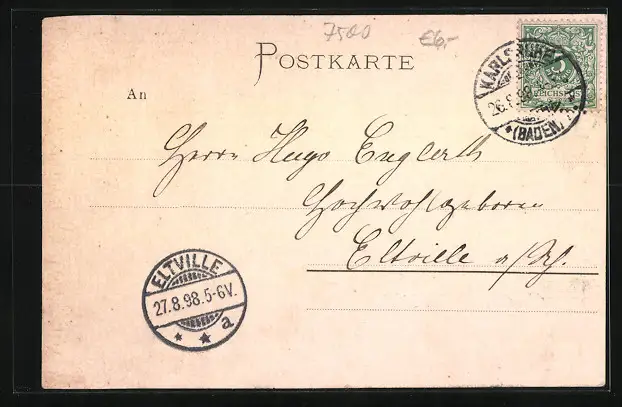 7500 €6,-
POSTKARTE
KARLSRUHE
26.8.98
*(BADEN)
5
REICHSPOST
An
Herrn Hugo Englerth
Hochwohlgeboren
Eltville a/Rh.
ELTVILLE
27.8.98.5-6V.
* * a